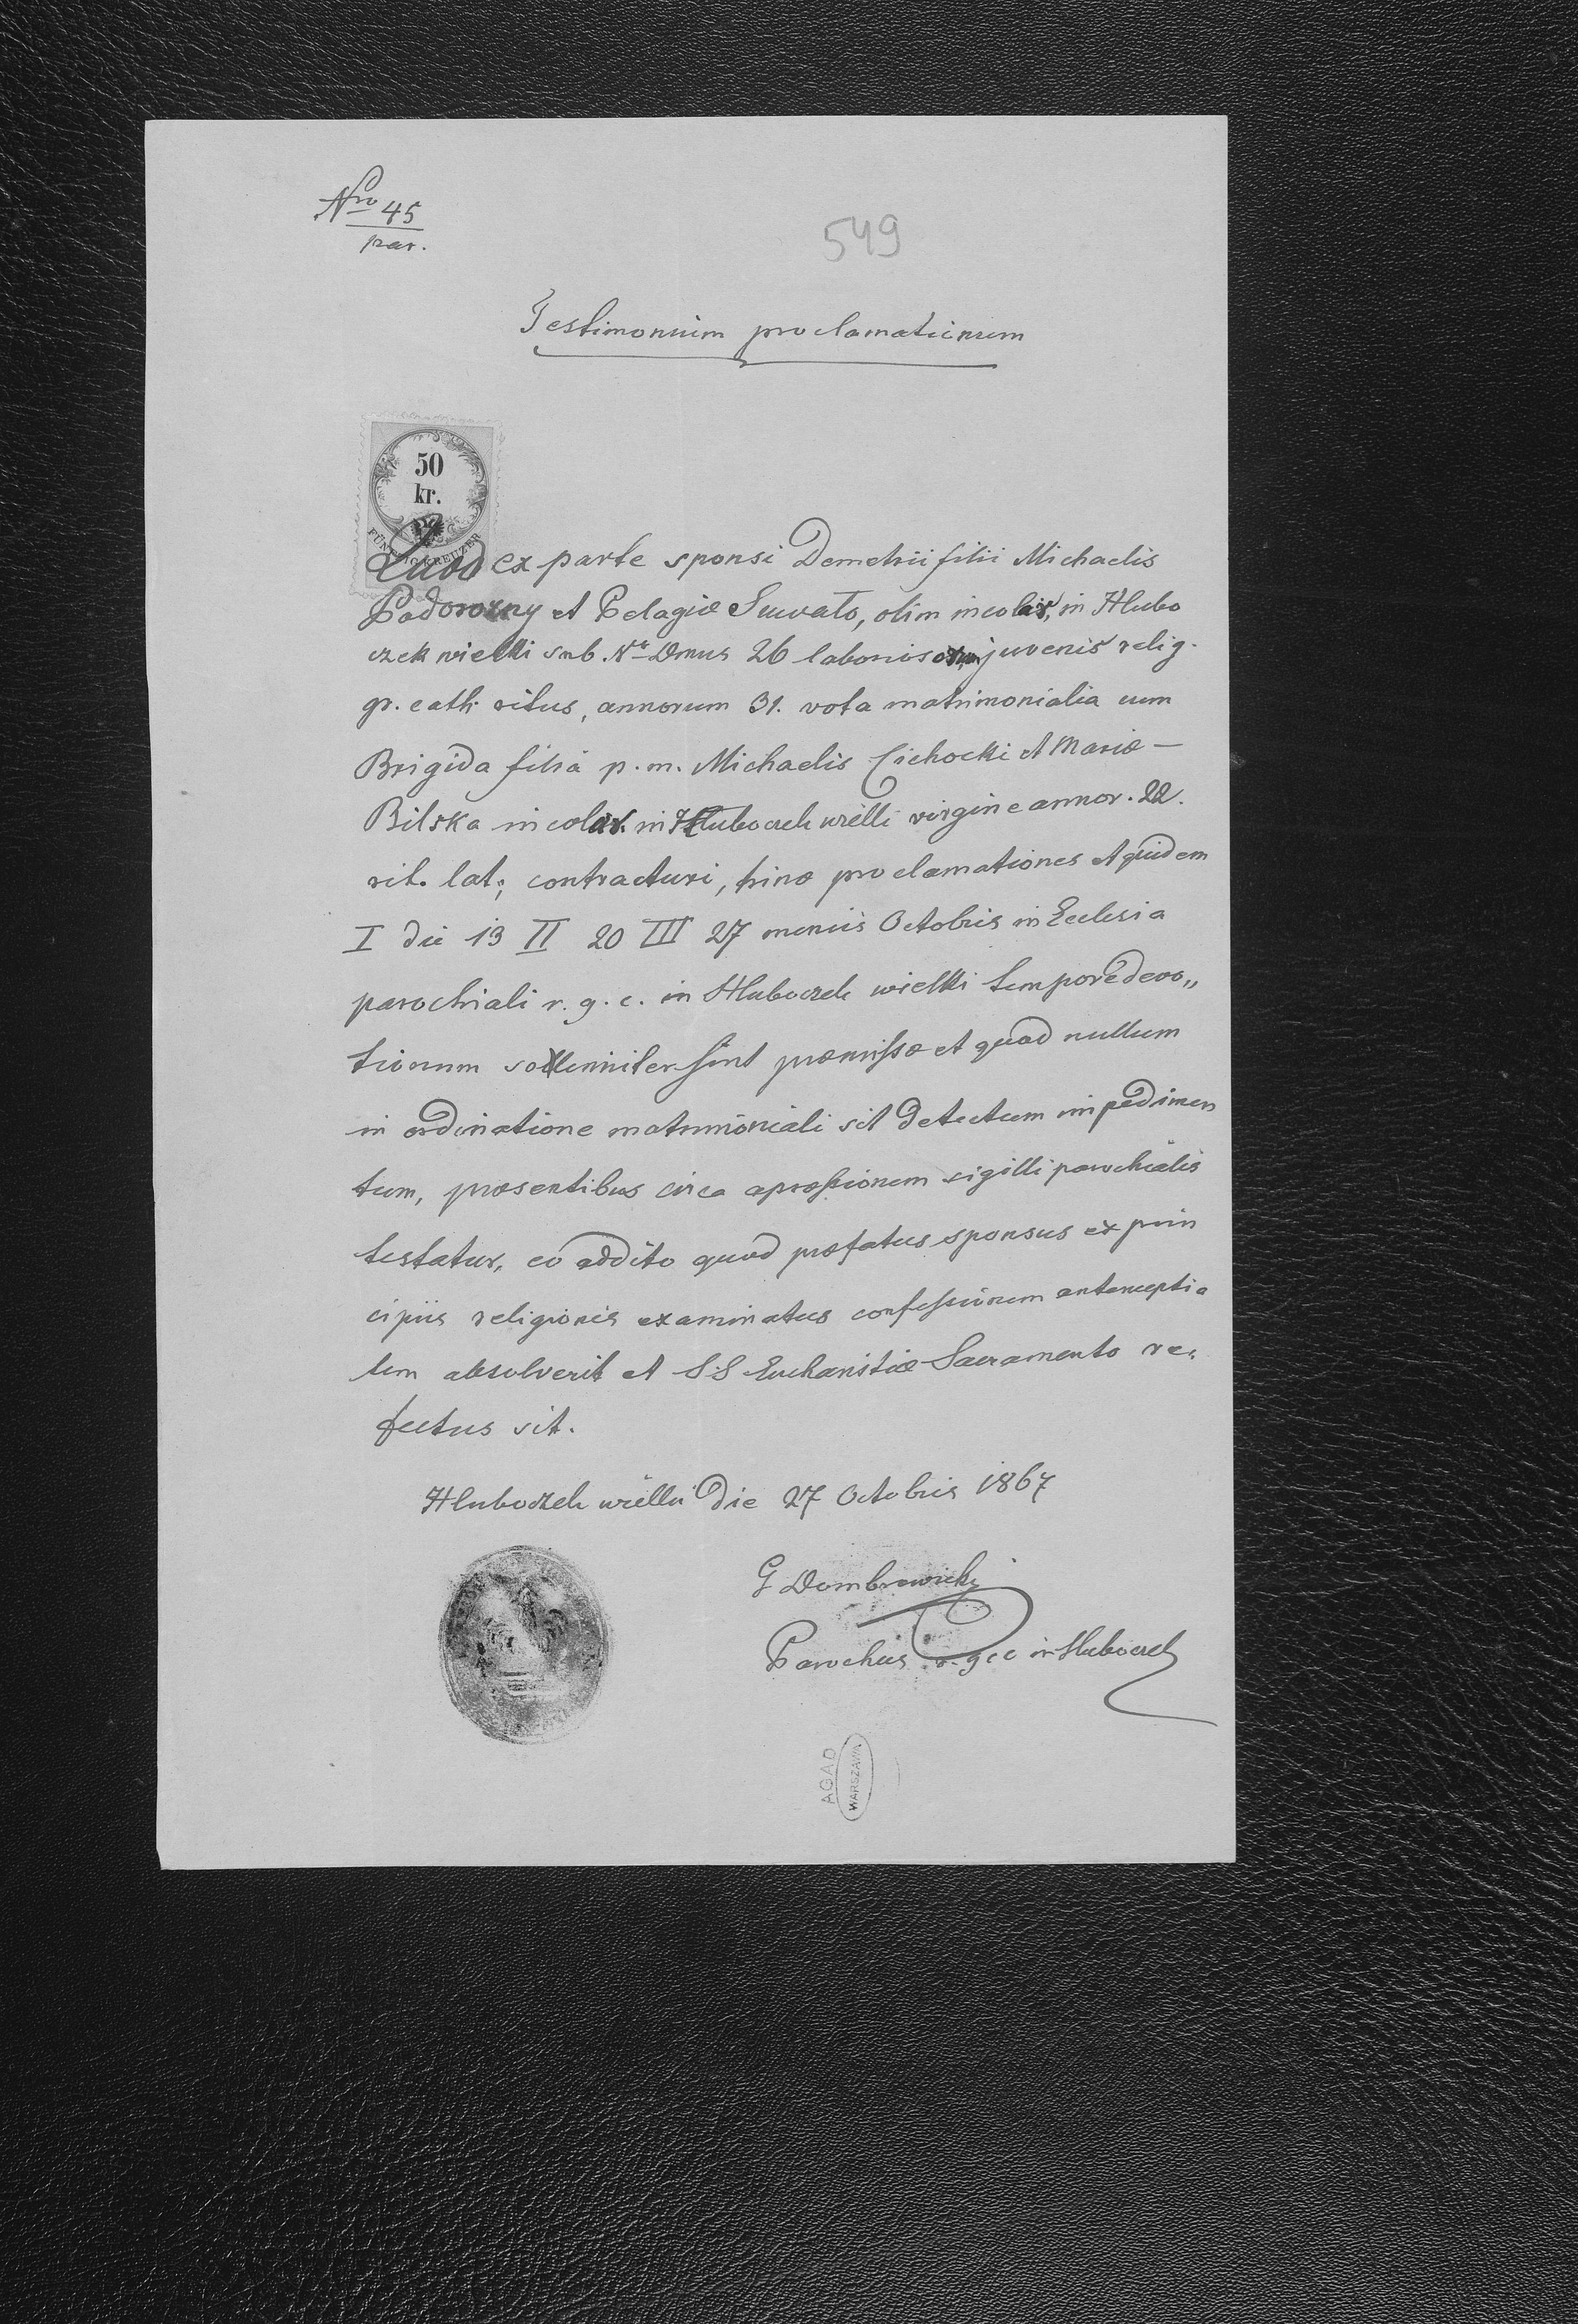 Nro 45
par.
549
Testimonium proclamationum
50
kr.
FÜNFZIG KREUZER
Quod ex parte sponsi Demetrii filii Michaelis
Podorozny et Pelagiæ olim incolar, in Hlubo
czek wielki sub. Nr Dmus 26 juvenis relig.
gr. cath ritus, annorum 31. vota matrimonialia cum
Brigida filia p. m. Michaelis Cichocki et Mariæ -
Bilska incolar. in Hluboczek wielki virgine annor. 22.
rit. lat; contracturi, trinæ proclamationes et quidem
I die 13 II 20 III 27 mensis Octobris in Ecclesia
parochiali r. g. c. in Hluboczek wielki tempore devo„
tionum sollenniter sint præmissæ et quod nullum
in ordinatione matrimoniali sit detectum impedimen
tum, præsentibus circa apressionem sigilli parochialis
testatur, eo addito quod præfatus sponsus ex prin
cipiis religionis examinatus confessionem antenuptia
lem absolverit et S.S Eucharistiæ Sacramento re„
fectus sit.
Hluboczek wielki die 27 Octobris 1867
G Dombrowicki
Parochus r. gcc in Hluboczek
AGAD
WARSZAWA